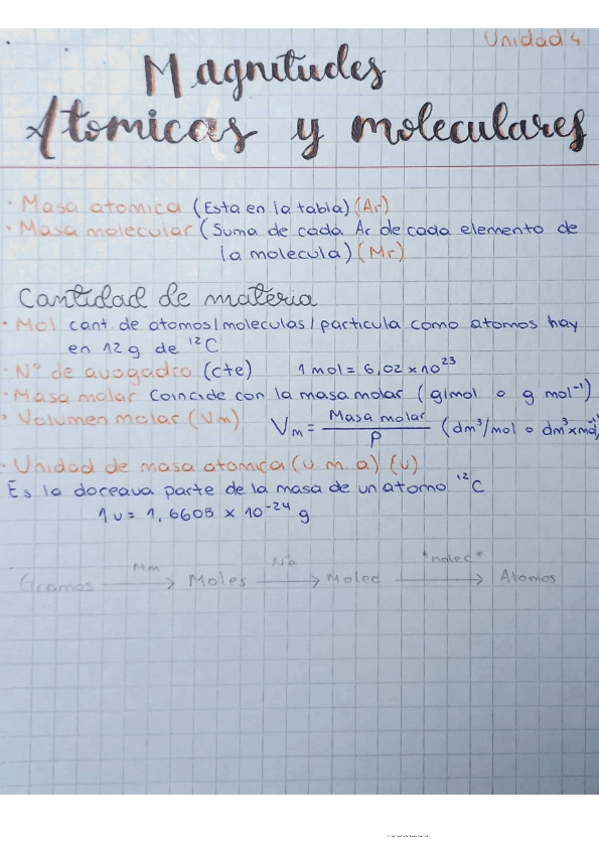 Unidad 4
Magnitudes
Atomicas y moleculares
· Masa atomica (Esta en la tabla) (Ar)
· Masa molecular (Suma de cada Ar de cada elemento de
la molecula) (Mr)
Cantidad de materia
· Mol cant. de atomos/moleculas/particula como atomos hay
en 12 g de ¹²C
· Nº de avogadro (cte) 1 mol = 6,02 x 10²³
· Masa molar Coincide con la masa molar (g/mol o g mol⁻¹)
· Volumen molar (Vm) Vm = Masa molar / ρ (dm³/mol o dm³xmol⁻¹)
· Unidad de masa atomica (u m a) (u)
Es la doceava parte de la masa de un atomo ¹²C
1u = 1,6605 x 10⁻²⁴ g
Gramos —Mm→ Moles —Nºa→ Molec —"molec"→ Atomos